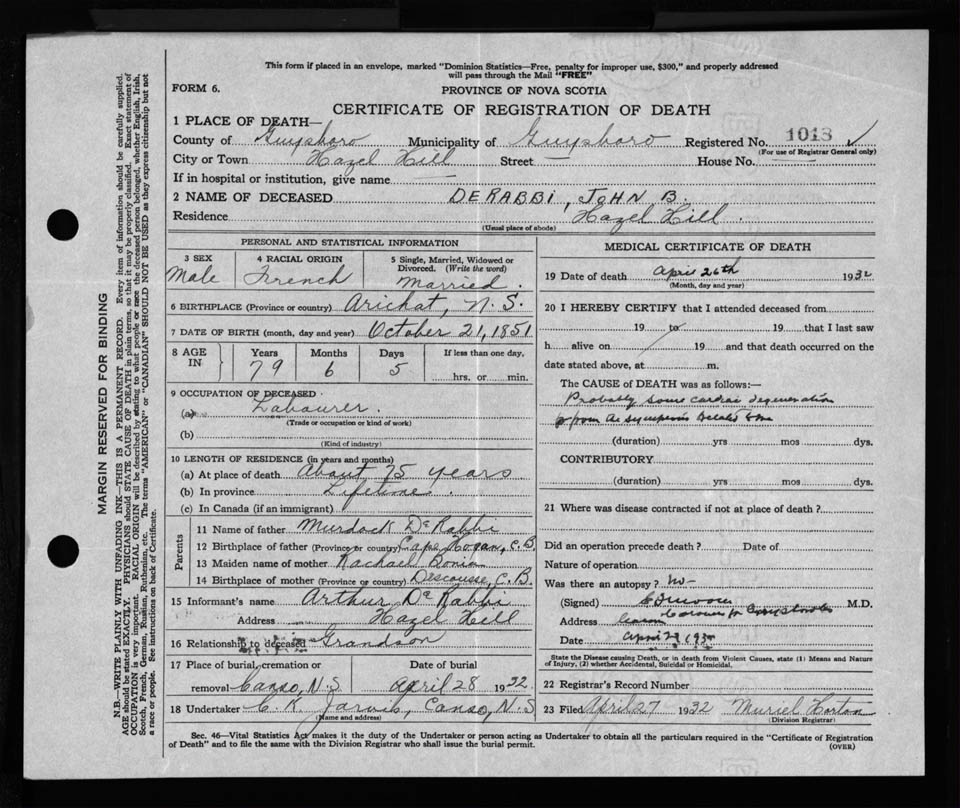 This form if placed in an envelope, marked "Dominion Statistics—Free, penalty for improper use, $300," and properly addressed
will pass through the Mail "FREE"
FORM 6.
PROVINCE OF NOVA SCOTIA
CERTIFICATE OF REGISTRATION OF DEATH
1 PLACE OF DEATH—
County of Guysboro Municipality of Guysboro Registered No. 1013
(For use of Registrar General only)
City or Town Hazel Hill Street — House No. —
If in hospital or institution, give name —
2 NAME OF DECEASED DERABBI, JOHN B.
Residence Hazel Hill.
(Usual place of abode)
PERSONAL AND STATISTICAL INFORMATION
3 SEX 4 RACIAL ORIGIN 5 Single, Married, Widowed or
Divorced. (Write the word)
Male French Married.
6 BIRTHPLACE (Province or country) Arichat, N.S.
7 DATE OF BIRTH (month, day and year) October 21, 1851
8 AGE IN Years Months Days If less than one day,
79 6 5 hrs. or min.
9 OCCUPATION OF DECEASED
(a) Labourer.
(Trade or occupation or kind of work)
(b)
(Kind of industry)
10 LENGTH OF RESIDENCE (in years and months)
(a) At place of death About 75 years
(b) In province Lifetime.
(c) In Canada (if an immigrant)
Parents
11 Name of father Murdock De Rabbi
12 Birthplace of father (Province or country) Cape Hogan, C.B.
13 Maiden name of mother Rachael Bonin
14 Birthplace of mother (Province or country) Descousse, C.B.
15 Informant's name Arthur De Rabbi
Address Hazel Hill
16 Relationship to deceased Grandson
17 Place of burial, cremation or Date of burial
removal Canso, N.S. April 28 1932
18 Undertaker C. K. Jarvis, Canso, N.S
(Name and address)
MEDICAL CERTIFICATE OF DEATH
19 Date of death April 26th 1932
(Month, day and year)
20 I HEREBY CERTIFY that I attended deceased from
19 to 19 that I last saw
h alive on 19 and that death occurred on the
date stated above, at m.
The CAUSE of DEATH was as follows:—
Probably some cardiac degeneration
from symptoms related to me
(duration) yrs mos dys.
CONTRIBUTORY
(duration) yrs mos dys.
21 Where was disease contracted if not at place of death?
Did an operation precede death? Date of
Nature of operation
Was there an autopsy? No-
(Signed) M.D.
Address Coroner for
Date April 27 1932
State the Disease causing Death, or in death from Violent Causes, state (1) Means and Nature
of Injury, (2) whether Accidental, Suicidal or Homicidal.
22 Registrar's Record Number
23 Filed April 27 1932 Muriel Horton
(Division Registrar)
Sec. 46—Vital Statistics Act makes it the duty of the Undertaker or person acting as Undertaker to obtain all the particulars required in the "Certificate of Registration
of Death" and to file the same with the Division Registrar who shall issue the burial permit.
(OVER)
MARGIN RESERVED FOR BINDING
N.B.—WRITE PLAINLY WITH UNFADING INK—THIS IS A PERMANENT RECORD. Every item of information should be carefully supplied.
AGE should be stated EXACTLY. PHYSICIANS should STATE CAUSE OF DEATH in plain terms, so that it may be properly classified. Exact statement of
OCCUPATION is very important. RACIAL ORIGIN will be described by stating to what people or race the deceased person belonged, whether English, Irish,
Scotch, French, German, Russian, Ruthenian, etc. The terms "AMERICAN" or "CANADIAN" SHOULD NOT BE USED as they express citizenship but not
a race or people. See instructions on back of Certificate.